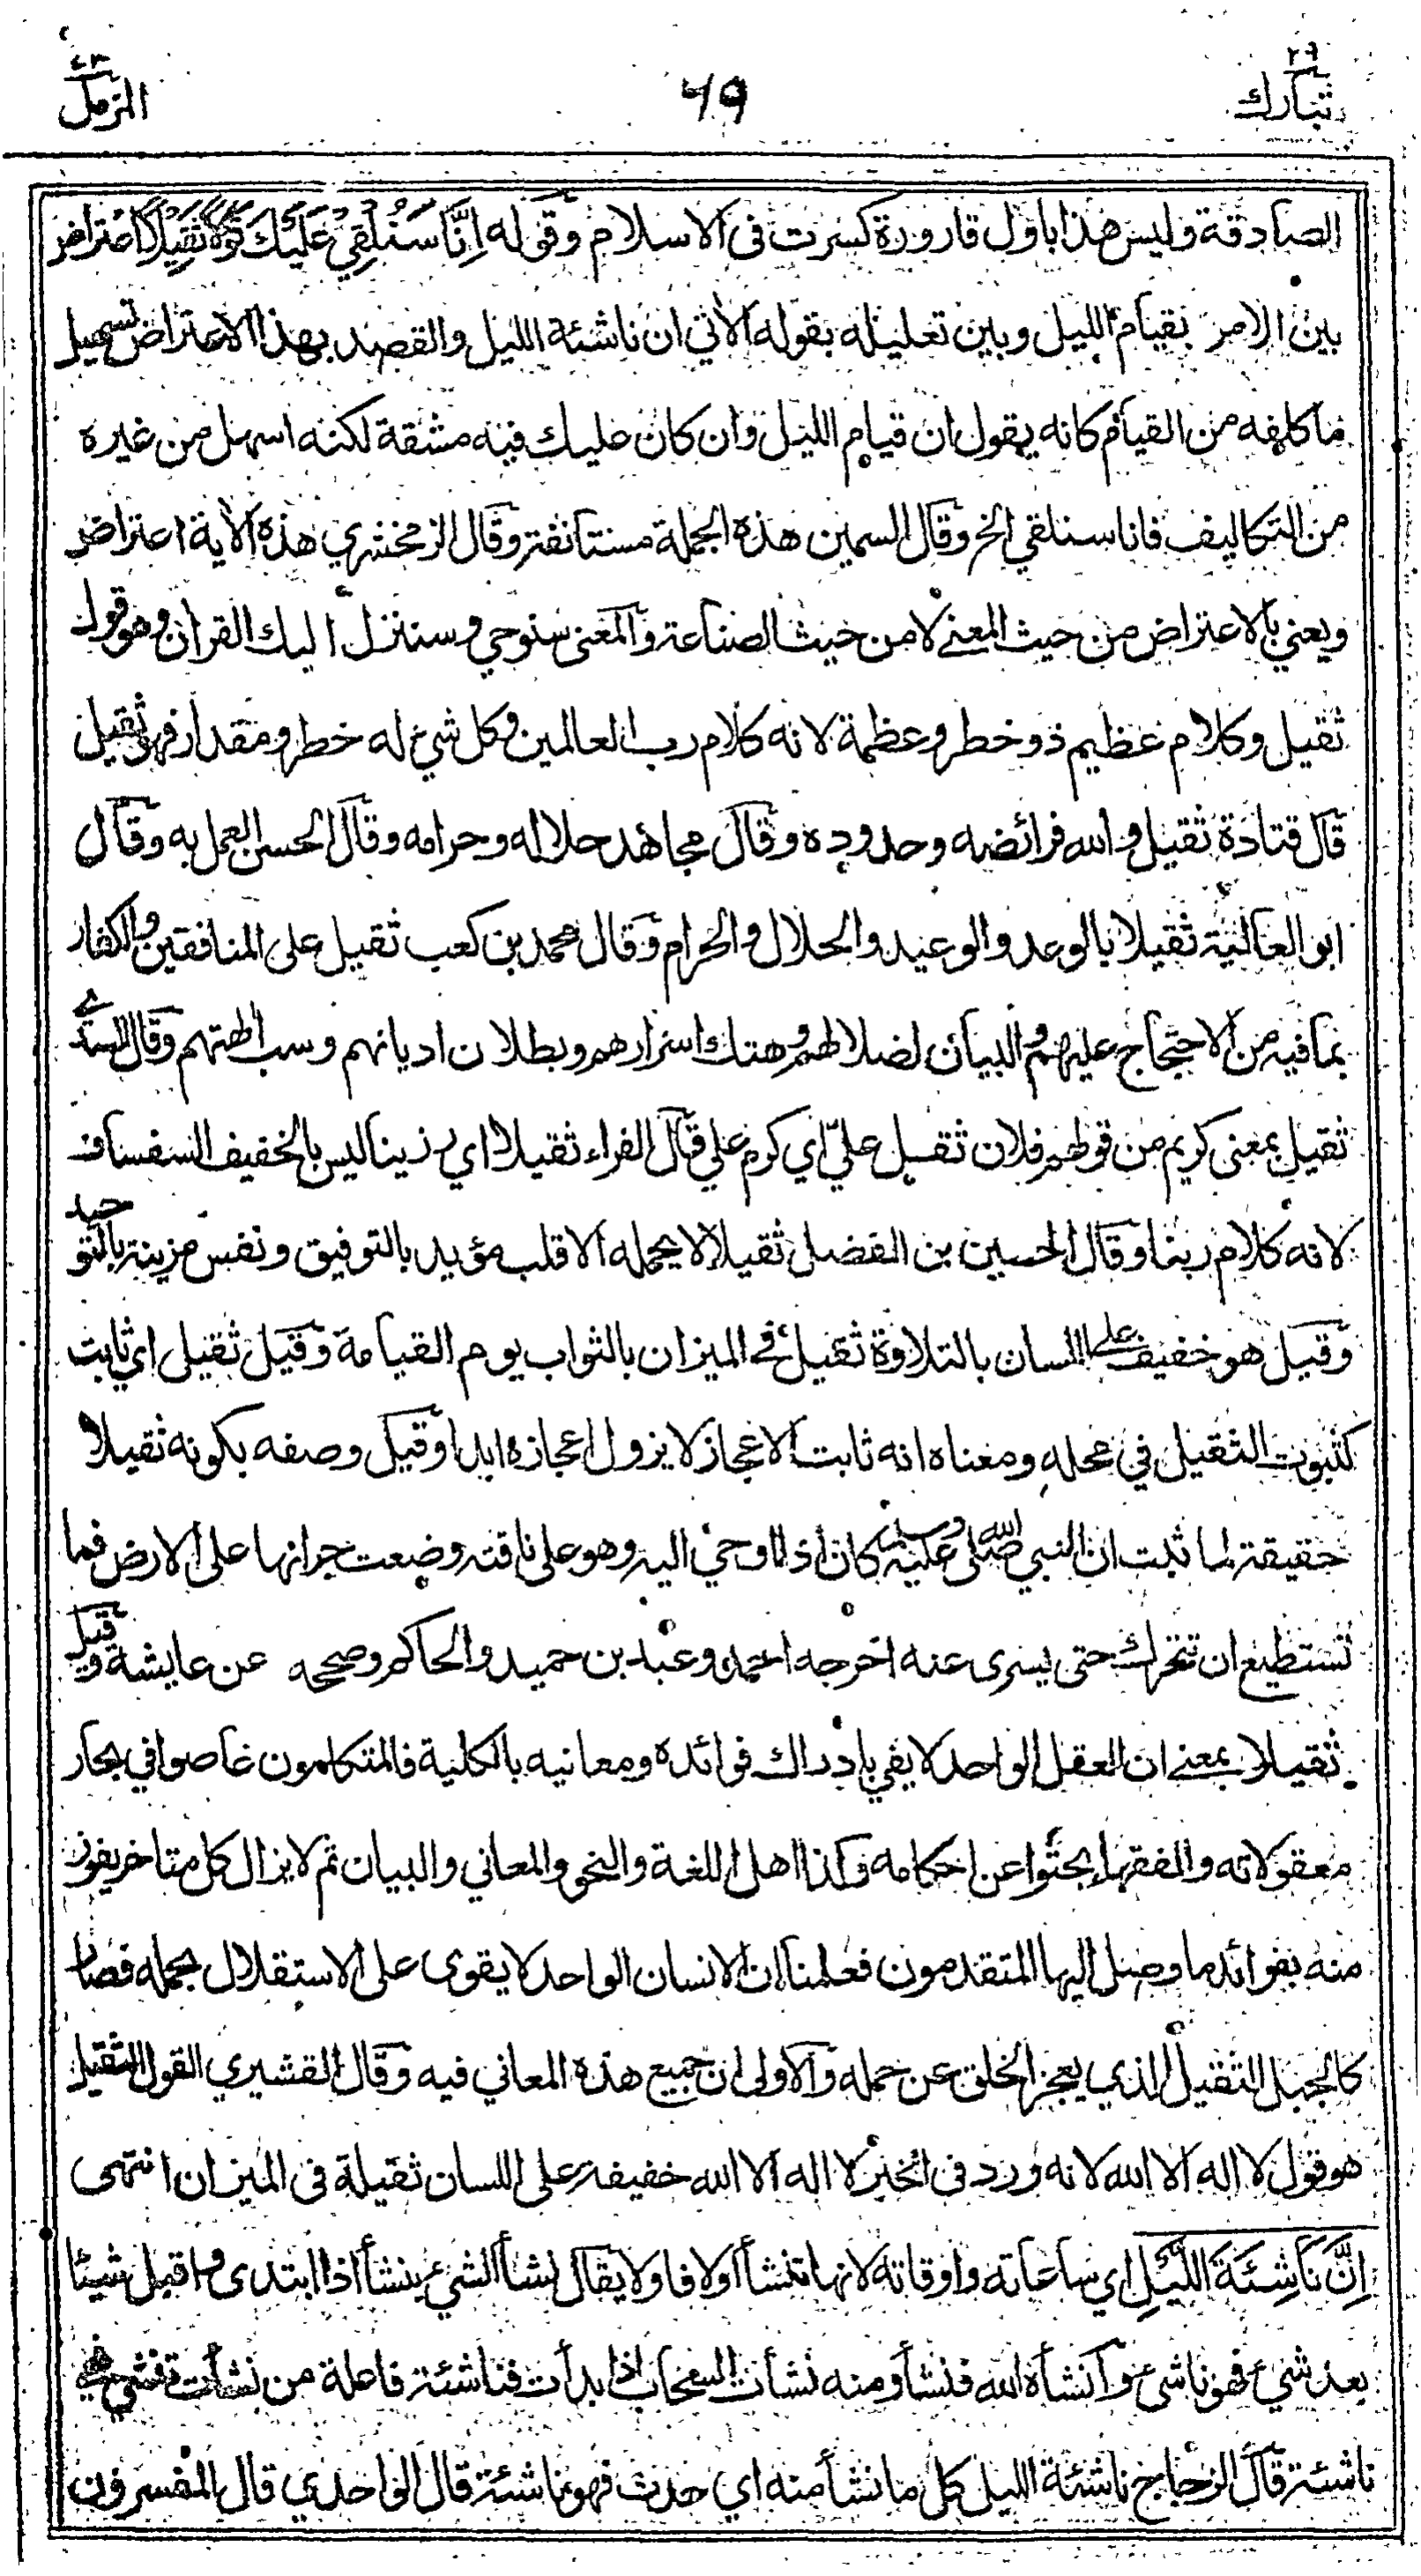 تبارك ٢٩
٤٩
المزمل ٧٣
الصادقة وليس هذا باول قارورة كسرت فى الاسلام وقوله اِنَّا سَنُلْقِيْ عَلَيْكَ قَوْلًا ثَقِيْلًا اعتراض
بين الامر بقيام الليل وبين تعليله بقوله الأتي ان ناشئة الليل والقصد بهذا الاعتراض تسهيل
ما كلفه من القيام كانه يقول ان قيام الليل وان كان عليك فيه مشقة لكنه اسهل من غيره
من التكاليف فانا سنلقي الخ وقال السمين هذه الجملة مستانفة وقال الزمخشري هذه الأية اعتراض
ويعني بالاعتراض من حيث المعنى لا من حيث الصناعة والمعنى سنوحي وسننزل اليك القرأن وهو قول
ثقيل وكلام عظيم ذو خطر وعظمة لانه كلام رب العالمين وكل شيء له خطر ومقدار فهو ثقيل
قال قتادة ثقيل والله فرائضه وحدوده وقال مجاهد حلاله وحرامه وقال الحسن العمل به وقال
ابو العالية ثقيلا بالوعد والوعيد والحلال والحرام وقال محمد بن كعب ثقيل على المنافقين والكفار
بما فيه من الاحتجاج عليهم والبيان لضلالهم وهتك اسرارهم وبطلان اديانهم وسب الهتهم وقال السدي
ثقيل بمعنى كريم من قولهم فلان ثقيل عليّ اي كرم علي قال الفراء ثقيلا اي رزينا ليس بالخفيف السفساف
لانه كلام ربنا وقال الحسين بن الفضل ثقيلا لا يحمله الا قلب مؤيد بالتوفيق ونفس مزينة بالتوحيد
وقيل هو خفيف على اللسان بالتلاوة ثقيل في الميزان بالثواب يوم القيامة وقيل ثقيل اي ثابت
كثبوت الثقيل في محله ومعناه انه ثابت الاعجاز لا يزول اعجازه ابدا وقيل وصفه بكونه ثقيلا
حقيقة لما ثبت ان النبي صلى الله عليه وسلم كان اذا اوحي اليه وهو على ناقته وضعت جرانها على الارض فما
تستطيع ان تتحرك حتى يسرى عنه اخرجه احمد وعبد بن حميد والحاكم وصححه عن عايشة وقيل
ثقيلا بمعنى ان العقل الواحد لا يفي بادراك فوائده ومعانيه بالكلية فالمتكلمون غاصوا في بحار
معقولاته والفقهاء بحثوا عن احكامه وكذا اهل اللغة والنحو والمعاني والبيان ثم لا يزال كل متاخر يفوز
منه بفوائد ما وصل اليها المتقدمون فعلمنا ان الانسان الواحد لا يقوى على الاستقلال بحمله فصار
كالجبل الثقيل الذي يعجز الخلق عن حمله والاولى ان جميع هذه المعاني فيه وقال القشيري القول الثقيل
هو قول لا اله الا الله لانه ورد فى الخبر لا اله الا الله خفيفة على اللسان ثقيلة فى الميزان انتهى
اِنَّ نَاشِئَةَ اللَّيْلِ اي ساعاته واوقاته لانها تنشأ اولا فاولا يقال نشأ الشيء ينشأ اذا ابتدى واقبل شيئا
بعد شيء فهو ناشئ وانشأه الله فنشأ ومنه نشأت السحاب اذا بدأت فناشئة فاعلة من نشأت تنشئ فهي
ناشئة قال الزجاج ناشئة الليل كل ما نشأ منه اي حدث فهو ناشئة قال الواحدي قال المفسرون